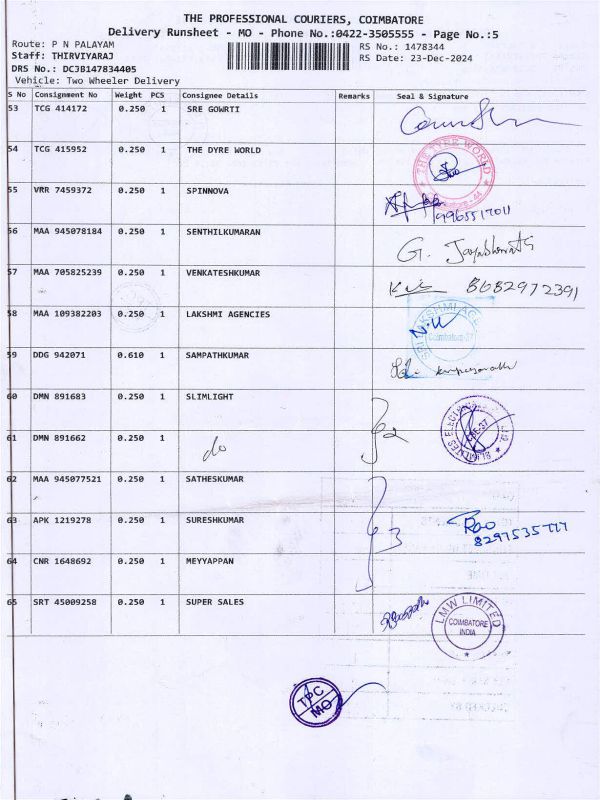 THE PROFESSIONAL COURIERS, COIMBATORE
Delivery Runsheet - MO - Phone No.:0422-3505555 - Page No.:5
Route: P N PALAYAM
RS No.: 1478344
Staff: THIRVIYARAJ
RS Date: 23-Dec-2024
DRS No.: DCJB147834405
Vehicle: Two Wheeler Delivery
S No Consignment No Weight PCS Consignee Details Remarks Seal & Signature
53 TCG 414172 0.250 1 SRE GOWRTI
54 TCG 415952 0.250 1 THE DYRE WORLD
THE TYRE WORLD
55 VRR 7459372 0.250 1 SPINNOVA
9965517011
56 MAA 945078184 0.250 1 SENTHILKUMARAN
G. Jayabharath
57 MAA 705825239 0.250 1 VENKATESHKUMAR
8682972391
58 MAA 109382203 0.250 1 LAKSHMI AGENCIES
SRI LAKSHMI AGE
Coimbatore-37
59 DDG 942071 0.610 1 SAMPATHKUMAR
60 DMN 891683 0.250 1 SLIMLIGHT
CBE-37
61 DMN 891662 0.250 1 do
2
62 MAA 945077521 0.250 1 SATHESKUMAR
63 APK 1219278 0.250 1 SURESHKUMAR
3
Rao
8297535777
64 CNR 1648692 0.250 1 MEYYAPPAN
65 SRT 45009258 0.250 1 SUPER SALES
LMW LIMITED
COIMBATORE
INDIA
TPC
MO